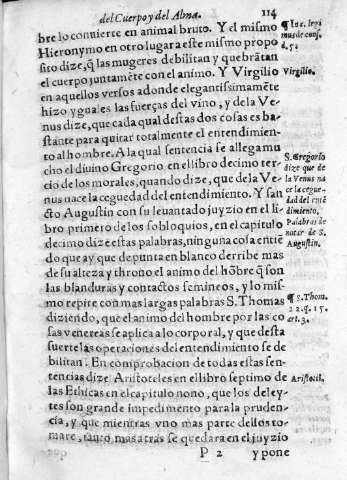 del Cuerpo y del Alma.
114
bre lo conuierte en animal bruto. Y el mismo
Hieronymo en otro lugar a este mismo propo
sito dize, q̃ las mugeres debilitan y quebrãtan
el cuerpo juntamẽte con el animo. Y Virgilio
en aquellos versos adonde elegantissimamẽte
hizo yguales las fuerças del vino, y de la Ve-
nus dize, que cada qual destas dos cosas es ba-
stante para quitar totalmente el entendimien-
to al hombre. A la qual sentencia se allega mu
cho el diuino Gregorio en el libro decimo ter-
cio de los morales, quando dize, que de la Ve-
nus nace la ceguedad del entendimiento. Y san
cto Augustin con su leuantado juyzio en el li-
bro primero de los soliloquios, en el capitulo
decimo dize estas palabras, ninguna cosa entiẽ
do que ay que de punta en blanco derribe mas
de su alteza y throno el animo del hõbre q̃ son
las blanduras y contactos femineos, y lo mis-
mo repite con mas largas palabras S. Thomas
diziendo, que el animo del hombre por las co
sas venereas se aplica a lo corporal, y que desta
suerte las operaciones del entendimiento se de
bilitan. En comprobacion de todas estas sen-
tencias dize Aristoteles en el libro septimo de
las Ethicas en el capitulo nono, que los deley-
tes son grande impedimento para la pruden-
cia, y que mientras vno mas parte dellos to-
mare, tanto mas atras se quedara en el juyzio
P 2
y pone
d. 5.
Virgilio.
S. Gregorio
dize que de
la Venus na
ce la cegue-
dad del entẽ
dimiento,
Palabras de
notar de S.
Augustin.
¶ S. Thom.
22. q. 15.
art. 3.
Aristotil.